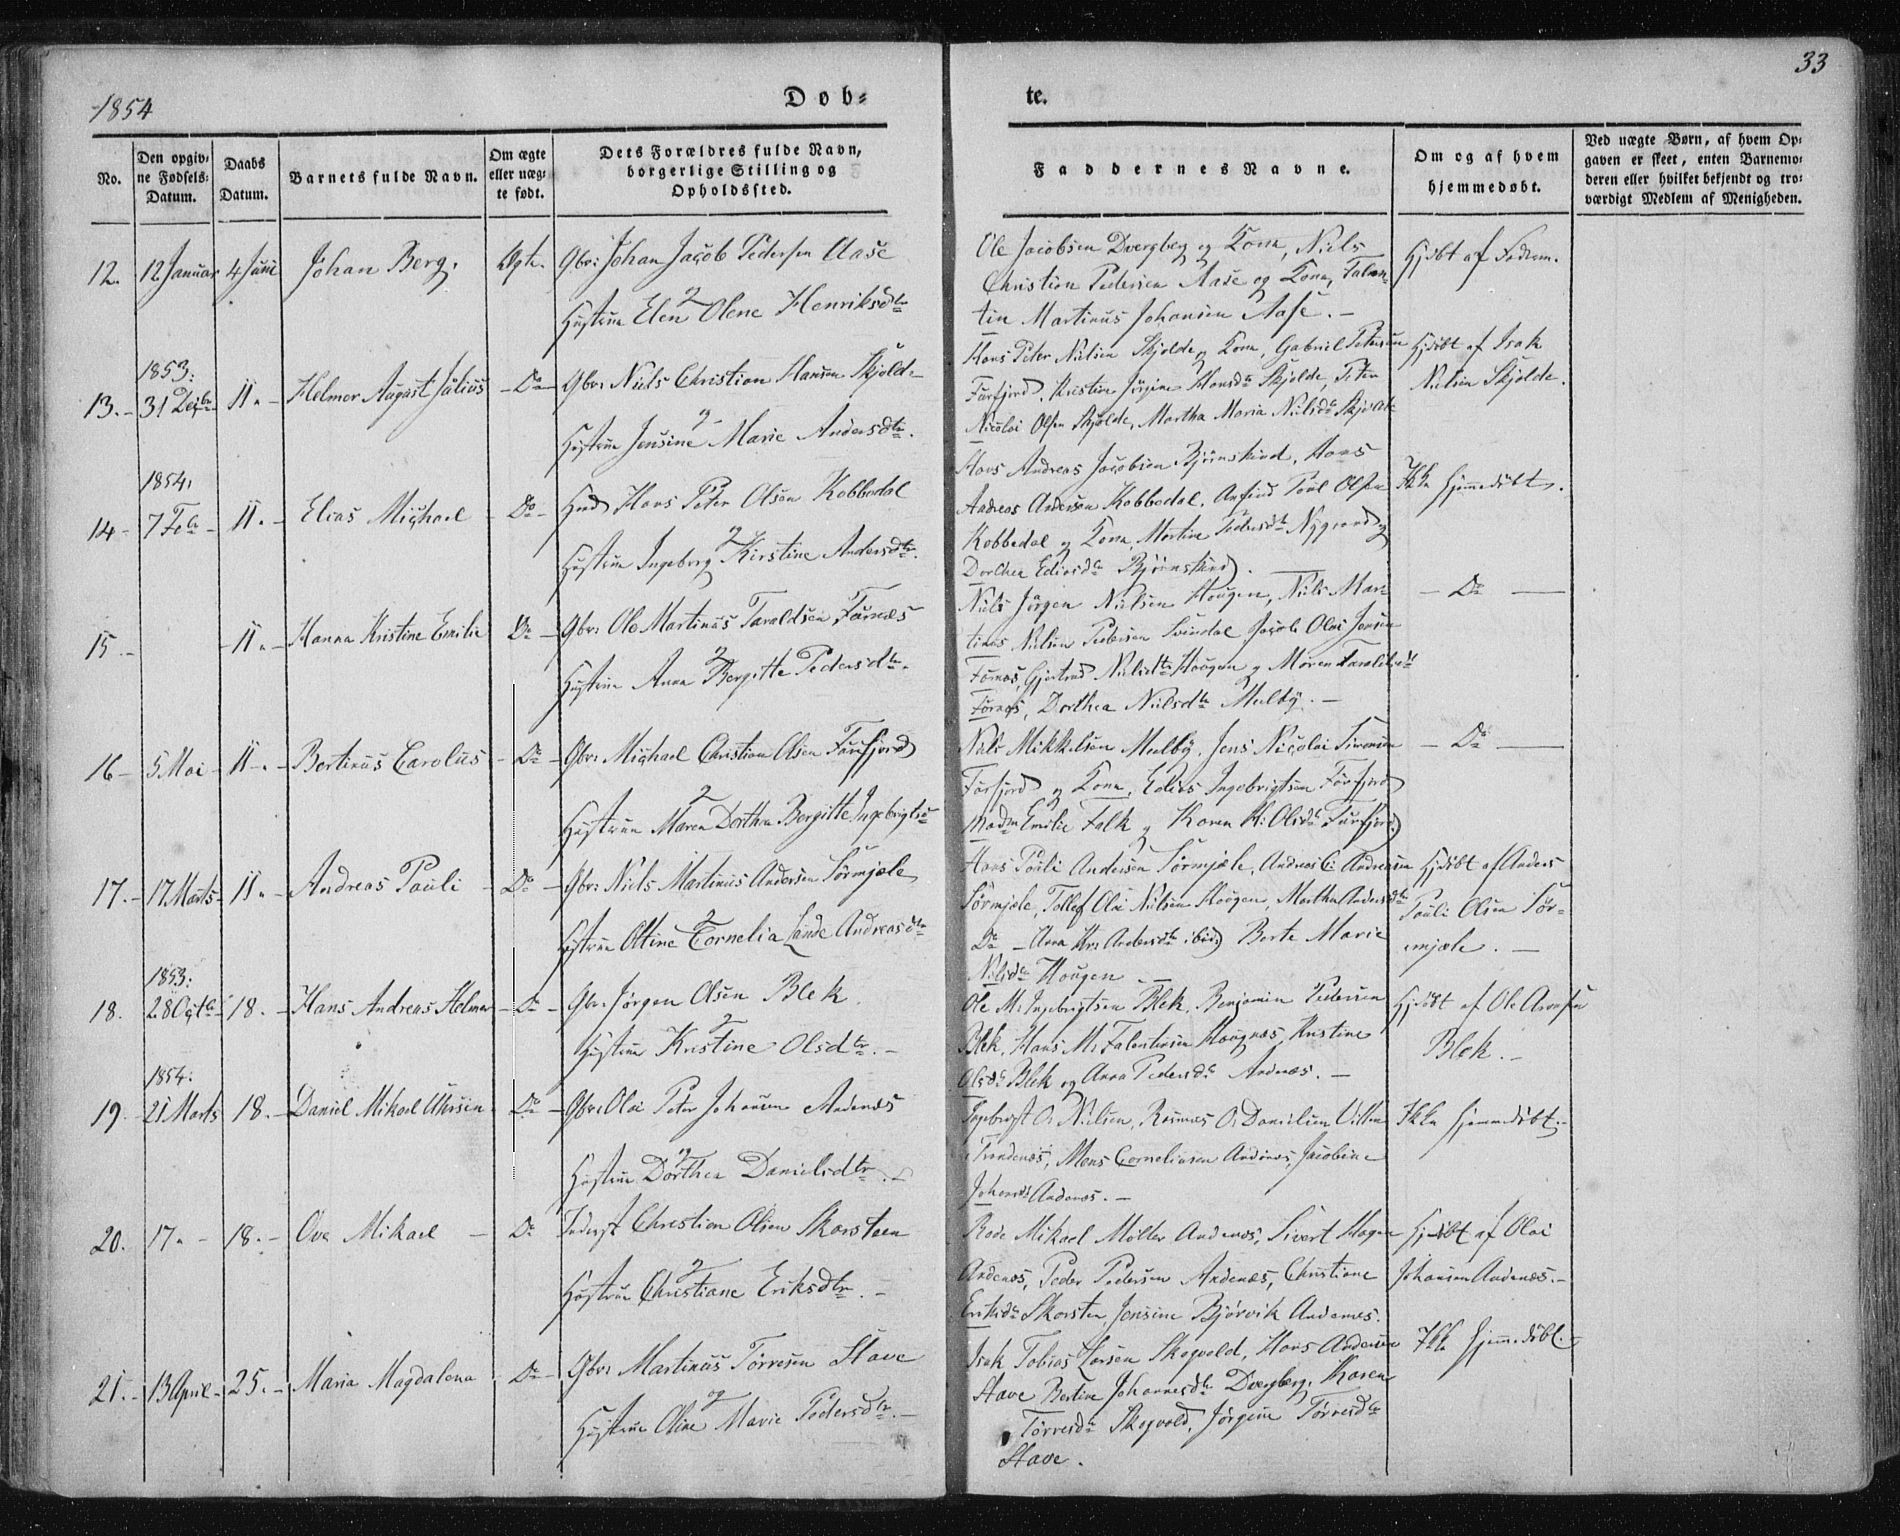 1854
Døb-
te.
33
No.
Den opgiv-
ne Fødsels-
Datum.
Daabs
Datum.
Barnets fulde Navn.
Om ægte
eller uæg-
te født.
Dets Forældres fulde Navn,
borgerlige Stilling og
Opholdssted.
Faddernes Navne.
Om og af hvem
hjemmedøbt.
Ved uægte Børn, af hvem Op-
gaven er skeet, enten Barnemo-
deren eller hvilket bekjendt og tro-
værdigt Medlem af Menigheden.
12. 12 Januar 4 Juni Johan Berg. Ægte. Gbr: Johan Jacob Pedersen Aase
& Hustrue Elen Olene Henriksdtr
Ole Jacobsen Dvergberg og Kone, Niels
Christian Pedersen Aase og Kone, Falen-
tin Martinus Johansen Aase. -
Hjdbt af Faderen.
1853:
13. - 31 Decbr 11. - Helmer August Julius - Do - Gbr: Niels Christian Hansen Skjolde
& Hustrue Jensine Marie Andersdtr.
Hans Peter Nielsen Skjolde og Kone, Gabriel Petersen
Forfjord, Kristine Jørgine Hansdtr Skjolde, Peter
Nicolai Olsen Skjolde, Martha Maria Nielsdtr Skjolde
Hjdøbt af Isak
Nielsen Skjolde.
1854.
14 - 7 Febr - 11. - Elias Michael - Do - Hmd Hans Peter Olsen Kobbedal
& Hustrue Ingeborg Kirstine Andersdtr.
Hans Andreas Jacobsen Bjørnskind, Hans
Andreas Andersen Kobbedal, Arfind Poul Olsen
Kobbedal og Kone, Martine Pedersdtr Nygaard og
Dorthea Ediasdtr Bjørnskind.
Ikke hjemmedøbt.
15. - 11. - Hanna Kristine Emilie Do - Gbr: Ole Martinus Taraldsen Fornæs
& Hustrue Anna Bergitte Pedersdtr.
Niels Jørgen Nielsen Hougen, Niels Mar-
tinus Nielsen Pedersen Svindal Jacob Olai Jensen
Fornæs, Gjertrud Nielsdtr Hougen og Maren Taraldsdtr
Fornæs, Dorthea Nielsdtr Meelby. -
- Do -
16 - 5 Mai - 11. - Bertinus Carolus - Do - Gbr: Michael Christian Olsen Forfjord
& Hustrue Maren Dorthea Bergitte Ingebrigtsd
Niels Mikkelsen Meelby, Jens Nicolai Simonsen
Forfjord og Kone, Edias Ingebrigtsen Forfjord
Madm Emilie Falk og Karen K: Olsdtr Forfjord
- Do -
17. - 17 Marts - 11. - Andreas Pauli - Do - Gbr: Niels Martinus Andersen Sørmjæle
& Hustrue Oltine Cornelia Lande Andreasdtr
Hans Pouli Andersen Sørmjæle, Andreas C: Andreasen
Sørmjæle, Tollef Olai Nielsen Hougen, Martha Andersdtr
Do - Anna Kr: Andersdtr ibid) Berte Marie
Nilsdtr Hougen
Hjdøbt af Anders
Pouli Olsen Sør-
mjæle. -
1853:
18. 28 Octbr 18. - Hans Andreas Helmer - Do - Gbr: Jørgen Olsen Blek.
& Hustrue Kristine Olsdtr. -
Ole M: Ingebrigtsen Blek, Benjamin Pedersen
Blek, Hans M: Falentinsen Haugnæs, Kristine
Olsdtr Blek og Anna Pedersdtr Andnæs. -
Hjdøbt af Ole Arntsen
Blek. -
1854.
19. - 21 Marts 18. - Daniel Mikael - Do - Gbr: Olai Peter Johansen Andenæs
& Hustrue Dorthea Danielsdtr. -
Ingebregt O: Nielsen, Rasmus O: Danielsen
Trondenæs, Mons Corneliusen Andenæs, Jacobine
Johansdtr Andenæs. -
Ikke hjemmedøbt. -
20. 17. - 18. - Ove Mikael - Do Inderst Christian Olsen Skarsteen
& Hustrue Christiane Eriksdtr. -
Rode Mikael Møller Andenæs, Sivert Hagen
Andenæs, Peder Pedersen Andenæs, Christiane
Eriksdtr Skarsten, Jensine Bjørvik Andenæs.
Hjdøbt af Olai
Johansen Andenæs. -
21. - 13 April - 25. - Maria Magdalena - Do - Gbr: Martinus Tørresen Stave
& Hustrue Oline Marie Pedersdtr. -
Isak Tobias Larsen Skogvold, Hans Andersen
Stave Bertine Johannesdtr Dvergberg, Karen
Tørresdtr Skogvold, Jørgine Tørresdtr
Stave.
Ikke hjemmedøbt. -